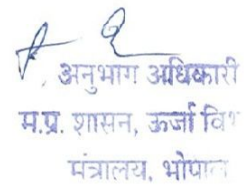 अनुभाग अधिकारी
म.प्र. शासन, ऊर्जा
मंत्रालय, भोपाल